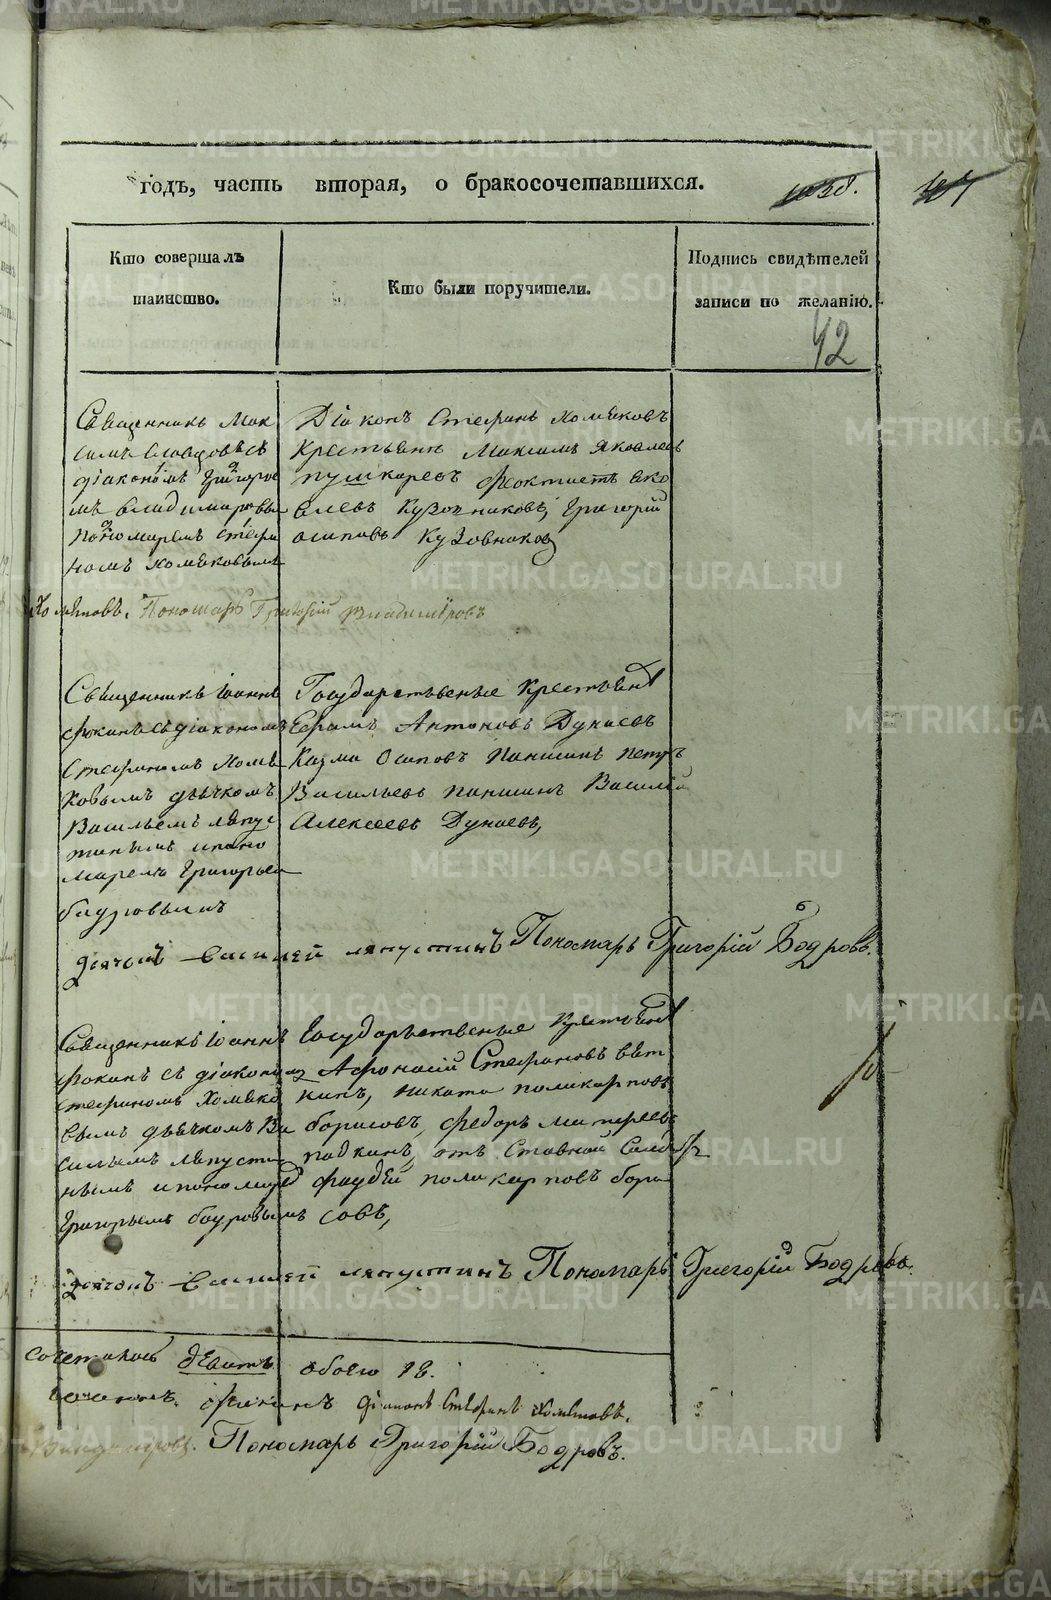 годъ, часть вторая, о бракосочетавшихся. 1038. 47
Кто совершалъ таинство.
Кто были поручители.
Подпись свидѣтелей записи по желанію.
42
Священникъ Мак
симъ Словцовъ съ
діакономъ Григорое
мъ Владимировы
Пономаремъ Стефа
номъ Хомяковымъ
Діаконъ Стефанъ Хомяковъ
Крестьяне Максимъ Яковлевъ
пушкаревъ Феоктистъ Яко
влевъ Кузовниковъ, Григорій
осиповъ Кузовниковъ
Хомяковъ. Пономарь Григорій Владиміровъ
Священникъ Іоаннъ
фокинъ съ діакономъ
Стефаномъ Хомя
ковымъ дьячкомъ
Васильемъ ляпус
тинымъ и поно
маремъ Григорьем
бодровымъ
Государственые Крестьяне
Ефимъ Антоновъ Дунаевъ
Казма Осиповъ паншинъ петръ
Васильевъ паншинъ Василій
Алексеевъ Дунаевъ,
дячокъ василей ляпустинъ Пономарь Григорій Бодровъ.
Священникъ Іоаннъ
фокинъ съ діаконом
стефаномъ Хомяко
вымъ дьячкомъ Ва
сильемъ ляпусти
нымъ и пономаре
Григорьемъ бодровымъ
Государственые Крестьяне
Афонасій Стефановъ вят
кинъ, никита поликарповъ
борисовъ, федоръ
падкинъ, отъ Ставной Слободы
фадей поликарповъ бори
совъ,
дячокъ василей ляпустинъ Пономарь Григорій Бодровъ.
сочеталось девять обоего 18.
фокинъ діаконъ Стефанъ Хомяковъ.
Владимировъ. Пономарь Григорій Бодровъ.
METRIKI.GASO-URAL.RU